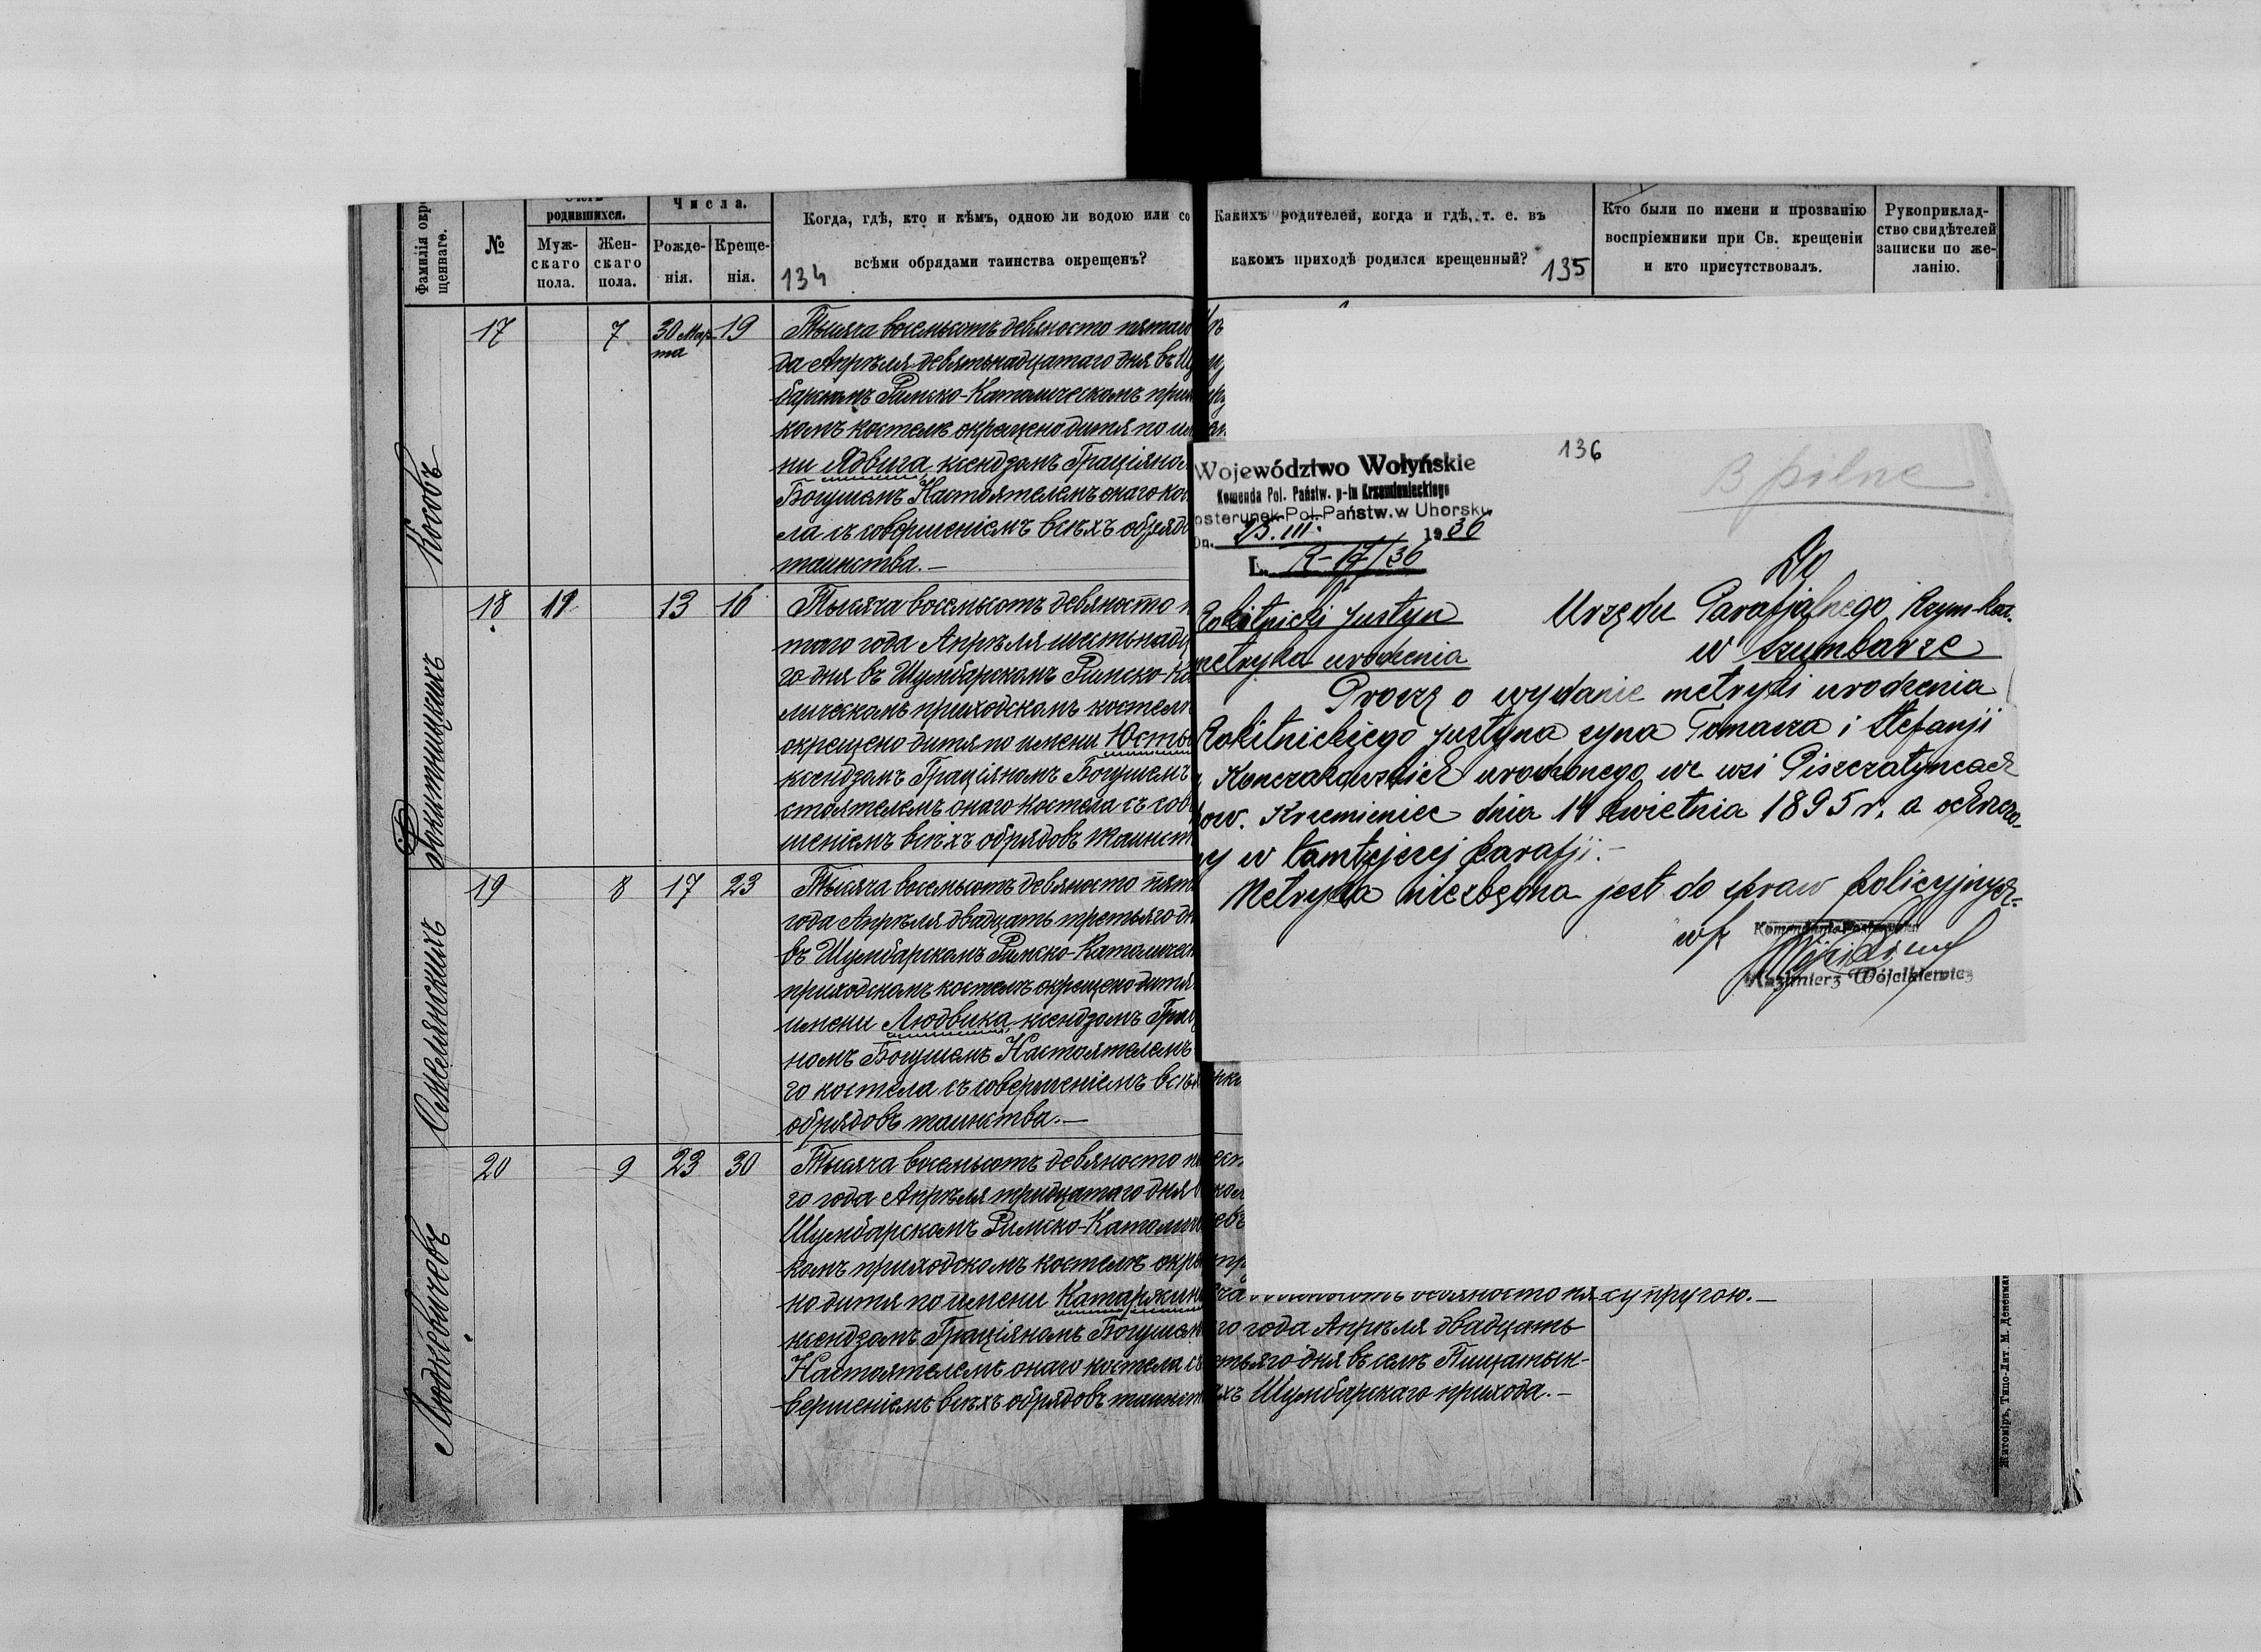 Фамилія окре
щеннаго.
№
родившихся.
Муж-
скаго
пола.
Жен-
скаго
пола.
Числа.
Рожде-
нія.
Креще-
нія.
Когда, гдѣ, кто и кѣмъ, одною ли водою или со
всѣми обрядами таинства окрещенъ?
134
Косовъ
17
7
30 Мар-
та
19
Тысяча восемьсотъ девяносто пятаго
да Апрѣля девятьнадцатаго дня въ Шу
барскомъ Римско-Католическомъ прих
комъ костелѣ окрещено дитя по име
ни Ядвига ксендзомъ Граціяном
Богушемъ Настоятелемъ онаго кос
ела съ совершеніемъ всѣхъ обрядо
таинства.—
Рокитницкихъ
18
11
13
16
Тысяча восемьсотъ девяносто п
таго года Апрѣля шестьнадц
го дня въ Шумбарскомъ Римско-Ка
лическомъ приходскомъ костелѣ
окрещено дитя по имени Юсты
ксендзомъ Граціяномъ Богушемъ
стоятелемъ онаго костела съ сов
шеніемъ всѣхъ обрядовъ таинст
19
8
17
23
Тысяча восемьсотъ девяносто пят
года Апрѣля двадцать третьяго дн
въ Шумбарскомъ Римско-Католичес
приходскомъ костелѣ окрещено дитя
имени Людвика ксендзомъ Грац
номъ Богушемъ Настоятелемъ
го костела съ совершеніемъ всѣх
обрядовъ таинства.—
Людкевичевъ
20
9
23
30
Тысяча восемьсотъ девяносто п
го года Апрѣля тридцатаго дня
Шумбарскомъ Римско-Католич
комъ приходскомъ костелѣ окре
но дитя по имени Катаржин
ксендзомъ Граціяномъ Богушем
Настоятелемъ онаго костела съ
вершеніемъ всѣхъ обрядовъ таинст
Какихъ родителей, когда и гдѣ, т. е. въ
какомъ приходѣ родился крещенный?
135
Кто были по имени и прозванію
воспріемники при Св. крещеніи
и кто присутствовалъ.
Рукоприклад-
ство свидѣтелей
записки по же-
ланію.
136
B pilne
Województwo Wołyńskie
Komenda Pol. Państw. p-tu Krzemienieckiego
osterunek Pol. Państw. w Uhorsku
Dn. 23.III. 1936
L. R-17/36
Rokitnicki Justyn
metryka urodzenia
Do
Urzędu Parafjalnego Rzym-kat.
w Szumbarze
Proszę o wydanie metryki urodzenia
Rokitnickiego Justyna syna Tomasza i Stefanji
Konczakowskich urodzonego we wsi Piszczatyńcach
pow. Krzemieniec dnia 14 kwietnia 1895 r. a ochrzczo-
ny w tamtejszej parafji.-
Metryka niezbędna jest do spraw policyjnych.
wz Komendanta Posterunku
Kazimierz Wójcikiewicz
супругою.—
го года Апрѣля двадцать
етьяго дня въ селѣ Пищатын-
ахъ Шумбарскаго прихода.—